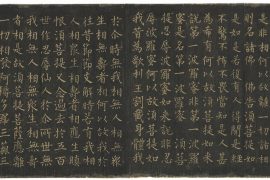 是非相何以故離一切諸相
則名諸佛佛告須菩提如是
如是若復有人得聞是經
不驚不怖不畏當知是人甚
為希有何以故須菩提如來
說第一波羅蜜非第一波
羅蜜是名第一波羅蜜須菩
提忍辱波羅蜜如來說非忍
辱波羅蜜何以故須菩提如
我昔為歌利王割截身體我
於爾時無我相無人相無眾
生相無壽者相何以故我於
往昔節節支解時若有我相
人相眾生相壽者相應生瞋
恨須菩提又念過去於五百
世作忍辱仙人於爾所世無
我相無人相無眾生相無壽
者相是故須菩提菩薩應離
一切相發阿耨多羅三藐三